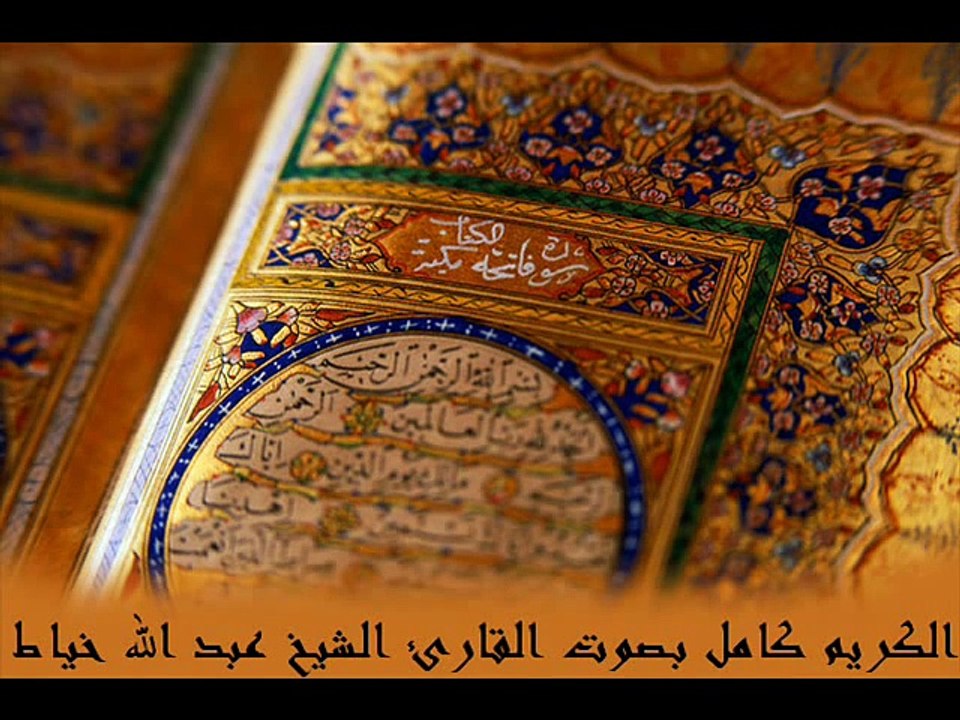 سورة فاتحة الكتاب مكية
بسم الله الرحمن الرحيم
الحمد لله رب العالمين الرحمن
الرحيم مالك يوم الدين اياك
اهدنا
الكريم كامل بصوت القارئ الشيخ عبد الله خياط